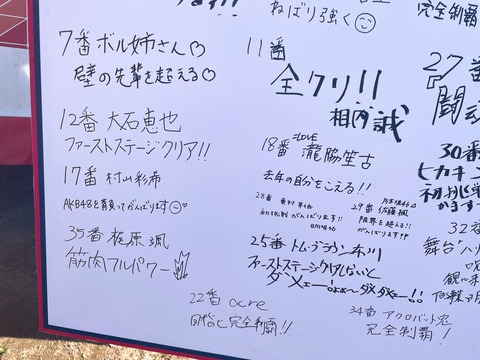 ねばり強く☺
完全制覇
7番 ボル姉さん♡
壁の先輩を超える♡
11番
全クリ!!
相内誠
27番
12番 大石恵也
ファーストステージクリア!!
17番 村山彩希
AKB48を背負ってがんばります☺
18番 =LOVE 瀧脇笙古
去年の自分をこえる!!
28番
初挑戦がんばります!!
日向坂46
乃木坂46
29番 佐藤楓
限界を超える!!
がんばります
30番
ヒカキン
初挑戦
かます
35番 梶原颯
筋肉フルパワー
25番 トム・ブラウン布川
ファーストステージクリアしないと
ダメェー!
ダメダメー!!
32番
舞台
22番 acre
完全制覇!!
34番 アクロバット鬼
完全制覇!